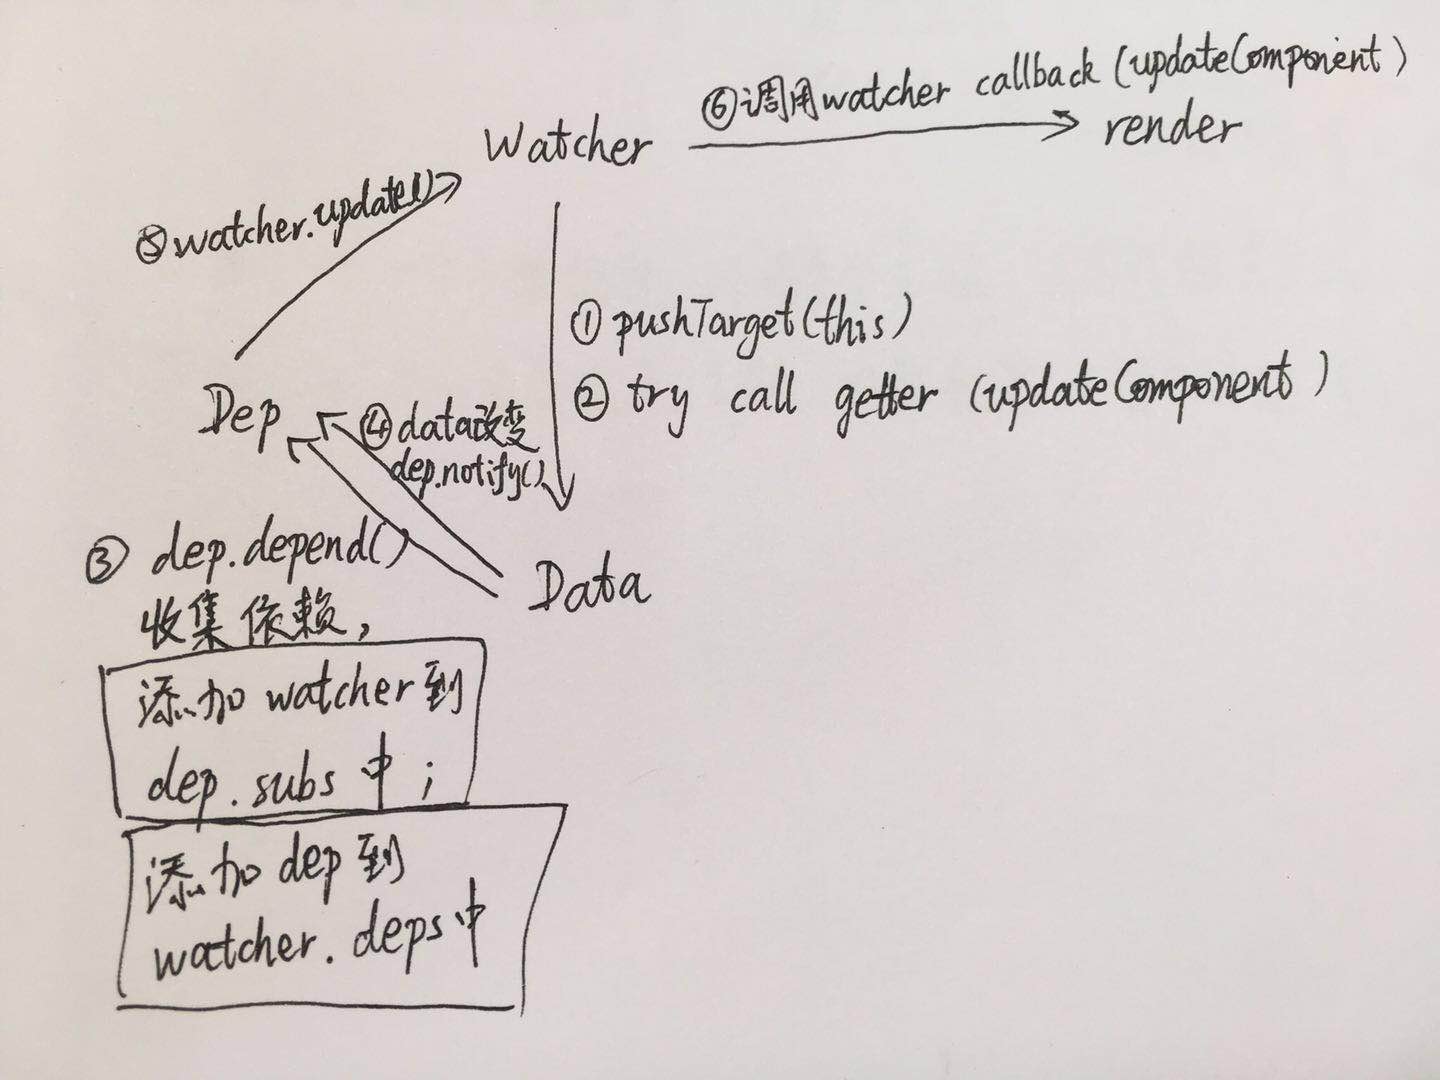 ⑥调用watcher callback (updateComponent)
Watcher
render
⑤watcher.update()
① pushTarget(this)
② try call getter (updateComponent)
Dep
④data改变
dep.notify()
③ dep.depend()
收集依赖,
Data
添加watcher到
dep.subs中;
添加dep到
watcher.deps中